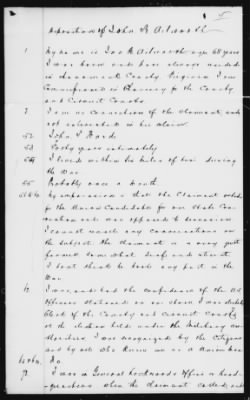 5
Deposition of John R. Ailworth
1 My name is John R. Ailworth age 68 years
I was born and have always resided
in Accomack County Virginia. I am
Commissioner in Chancery for the County
and Circuit Courts.
2 I am no connection of the claimant and
not interested in his claim
52 John S
53 Forty years intimately
54 I lived within six miles of him during
the War.
55 Probably once a month
My impression is that the Claimant voted
for the Union Candidate for our State Con
vention and was opposed to secession
I cannot recall any conversations on
the subject. The claimant is a very quiet
farmer, somewhat deaf and silent
I don't think he took any part in the
War.
I was, and had the confidence of the US
Officers stationed on our shore. I was elected
Clerk of the County and Circuit Courts
at the election held under the Military au
thorities. I was recognized by the citizens
and by all who knew me as a Union man
No
I was in General Lockwood's Office or head-
quarters when the claimant called, and